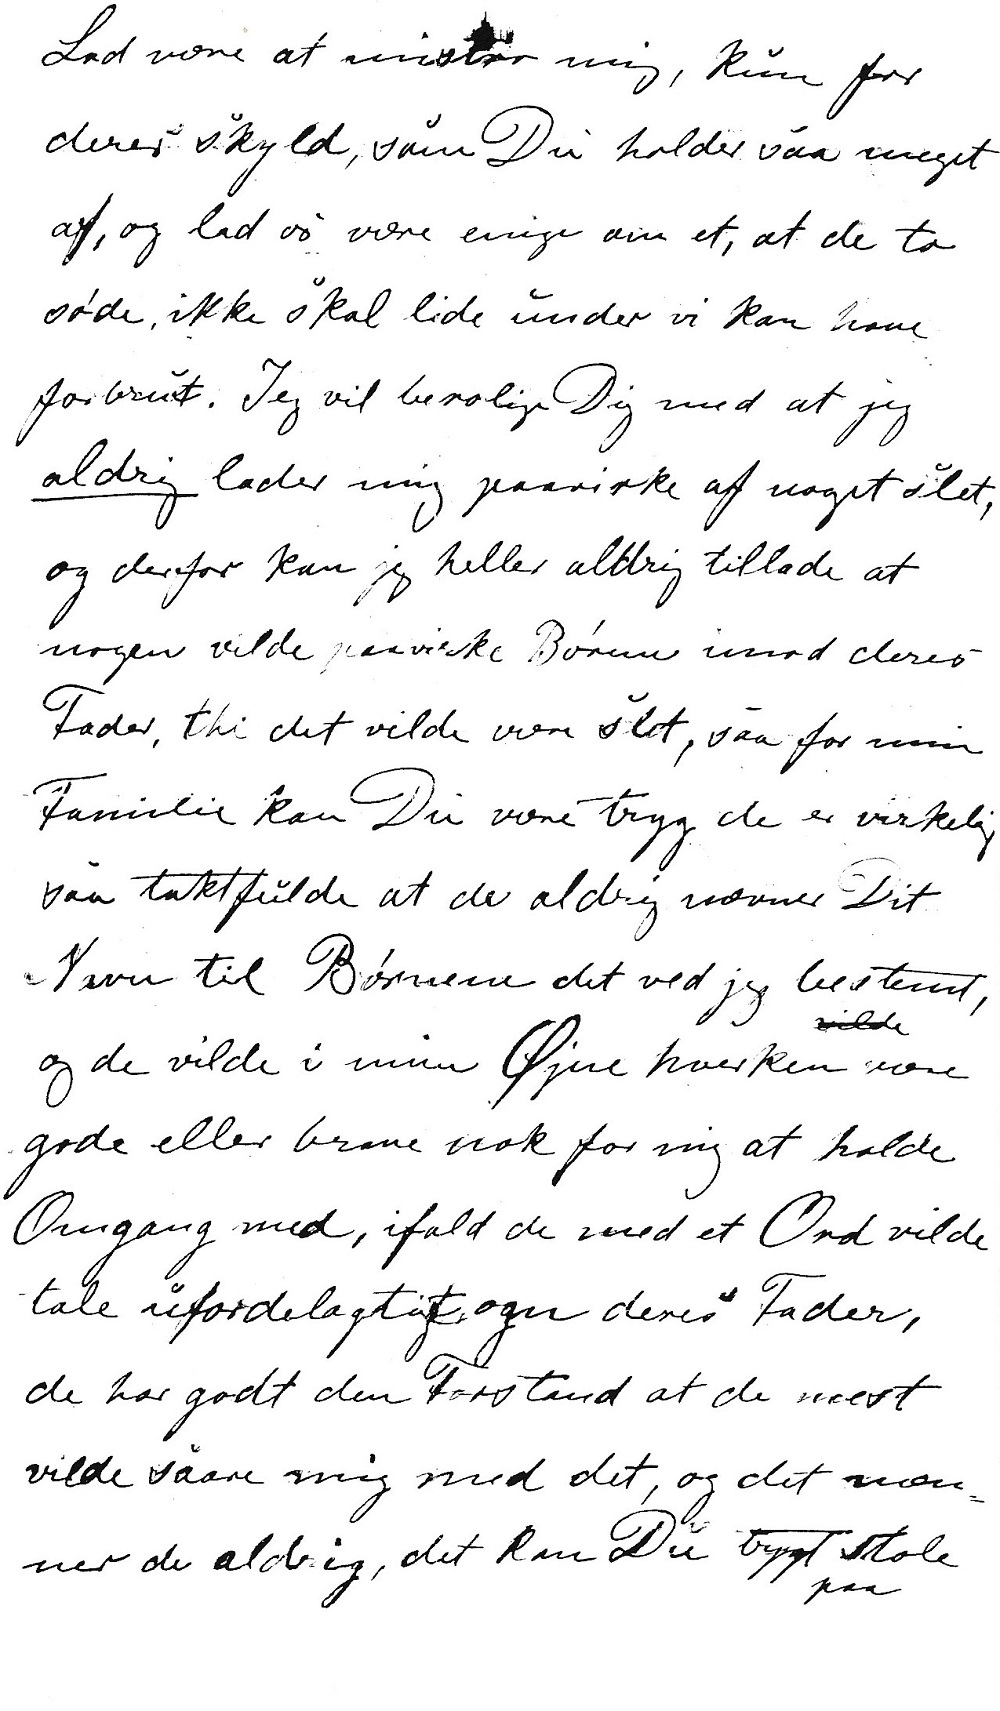 Lad være at mistro mig, kun for
deres skyld, som Du holder saa meget
af, og lad os være enige om et, at de to
søde, ikke skal lide under vi kan have
forbrut. Jeg vil berolige Dig med at jeg
aldrig lader mig paavirke af noget slet,
og derfor kan jeg heller aldrig tillade at
nogen vilde paavirke Børnene imod deres
Fader, thi det vilde være slet, saa for min
Familie kan Du være tryg de er virkelig
saa taktfulde at de aldrig nævner Dit
Navn til Børnene det ved jeg bestemt,
vilde
og de vilde i mine Øjne hverken være
gode eller brave nok for mig at holde
Omgang med, ifald de med et Ord vilde
tale ufordelagtigt om deres Fader,
de har godt den Forstand at de mest
vilde saare mig med det, og det næn-
ner de aldrig, det kan Du trygt stole
paa